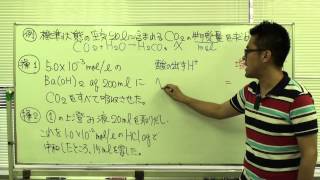 例 標準状態の空気10lに含まれるCO₂の物質量を求む
CO₂+H₂O→H₂CO₃ x mol
操1 5.0×10⁻³mol/lの
Ba(OH)₂ aq 200mlに
CO₂をすべて吸収させた。
酸の出すH⁺
=
操2 1の上澄み液20mlを取り出し
これを1.0×10⁻²mol/lのHCl aqで
中和したところ、14mlを要した。